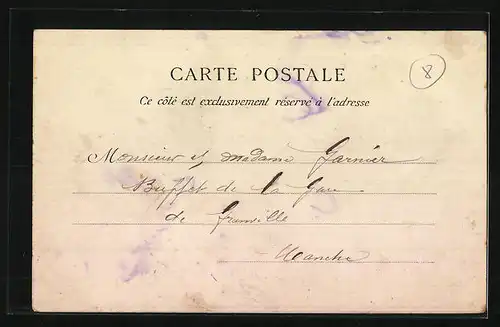 CARTE POSTALE
8
Ce côté est exclusivement réservé à l'adresse
Monsieur et madame Garnier
Buffet de la Gare
de Granville
Manche